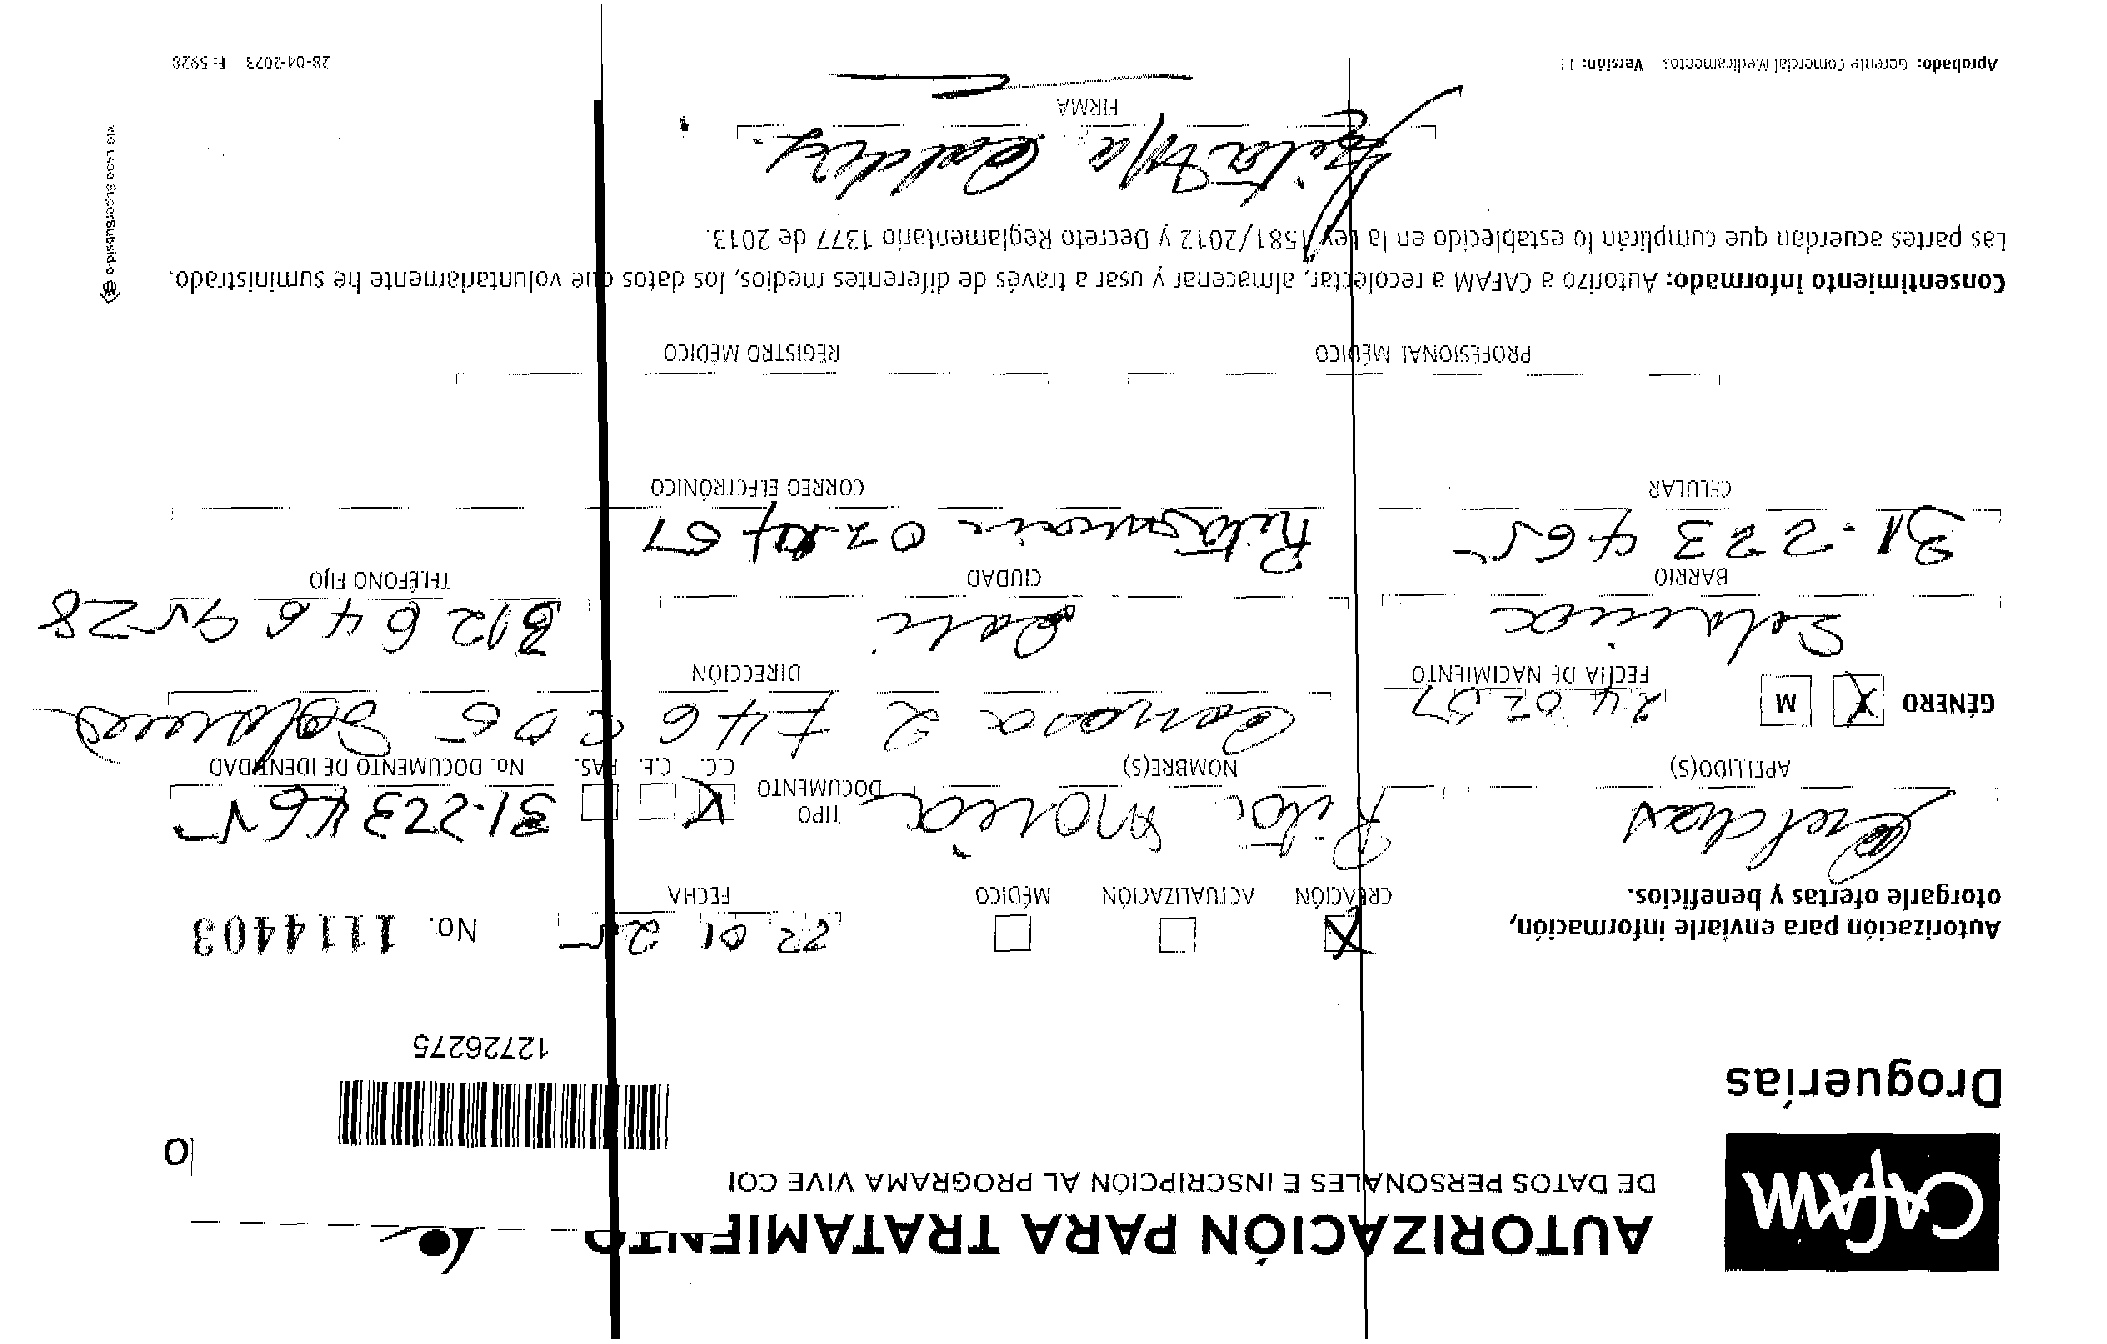 CAFAM
Droguerías
AUTORIZACIÓN PARA TRATAMIENTO
DE DATOS PERSONALES E INSCRIPCIÓN AL PROGRAMA VIVE CO
12726275
Autorización para enviarle información,
otorgarle ofertas y beneficios.
X CREACIÓN ACTUALIZACIÓN MÉDICO
22 01 25 FECHA
No. 1114403
APELLIDO(S)
Rita Maria NOMBRE(S)
TIPO DOCUMENTO X C.C. C.E. PAS.
31.223465 No. DOCUMENTO DE IDENTIDAD
GÉNERO X M
24 02 57 FECHA DE NACIMIENTO
DIRECCIÓN
BARRIO
Cali CIUDAD
312 646 9528 TELÉFONO FIJO
31.223465 CELULAR
CORREO ELECTRÓNICO
PROFESIONAL MÉDICO REGISTRO MÉDICO
Consentimiento Informado: Autorizo a CAFAM a recolectar, almacenar y usar a través de diferentes medios, los datos que voluntariamente he suministrado.
Las partes acuerdan que cumplirán lo establecido en la Ley 1581/2012 y Decreto Reglamentario 1377 de 2013.
Rita Ma
FIRMA
Aprobado: Gerente Comercial Medicamentos Versión: 11
28-04-2023 F: 5928